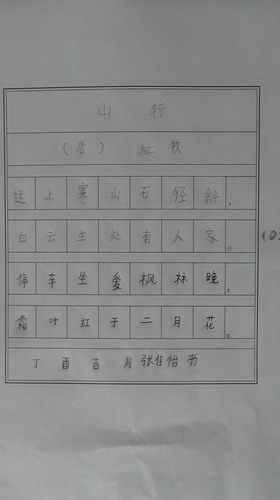 山行
（（唐） 杜牧
远上寒山石径斜，
白云生处有人家。
停车坐爱枫林晚，
霜叶红于二月花。
丁酉吉月张佳怡书